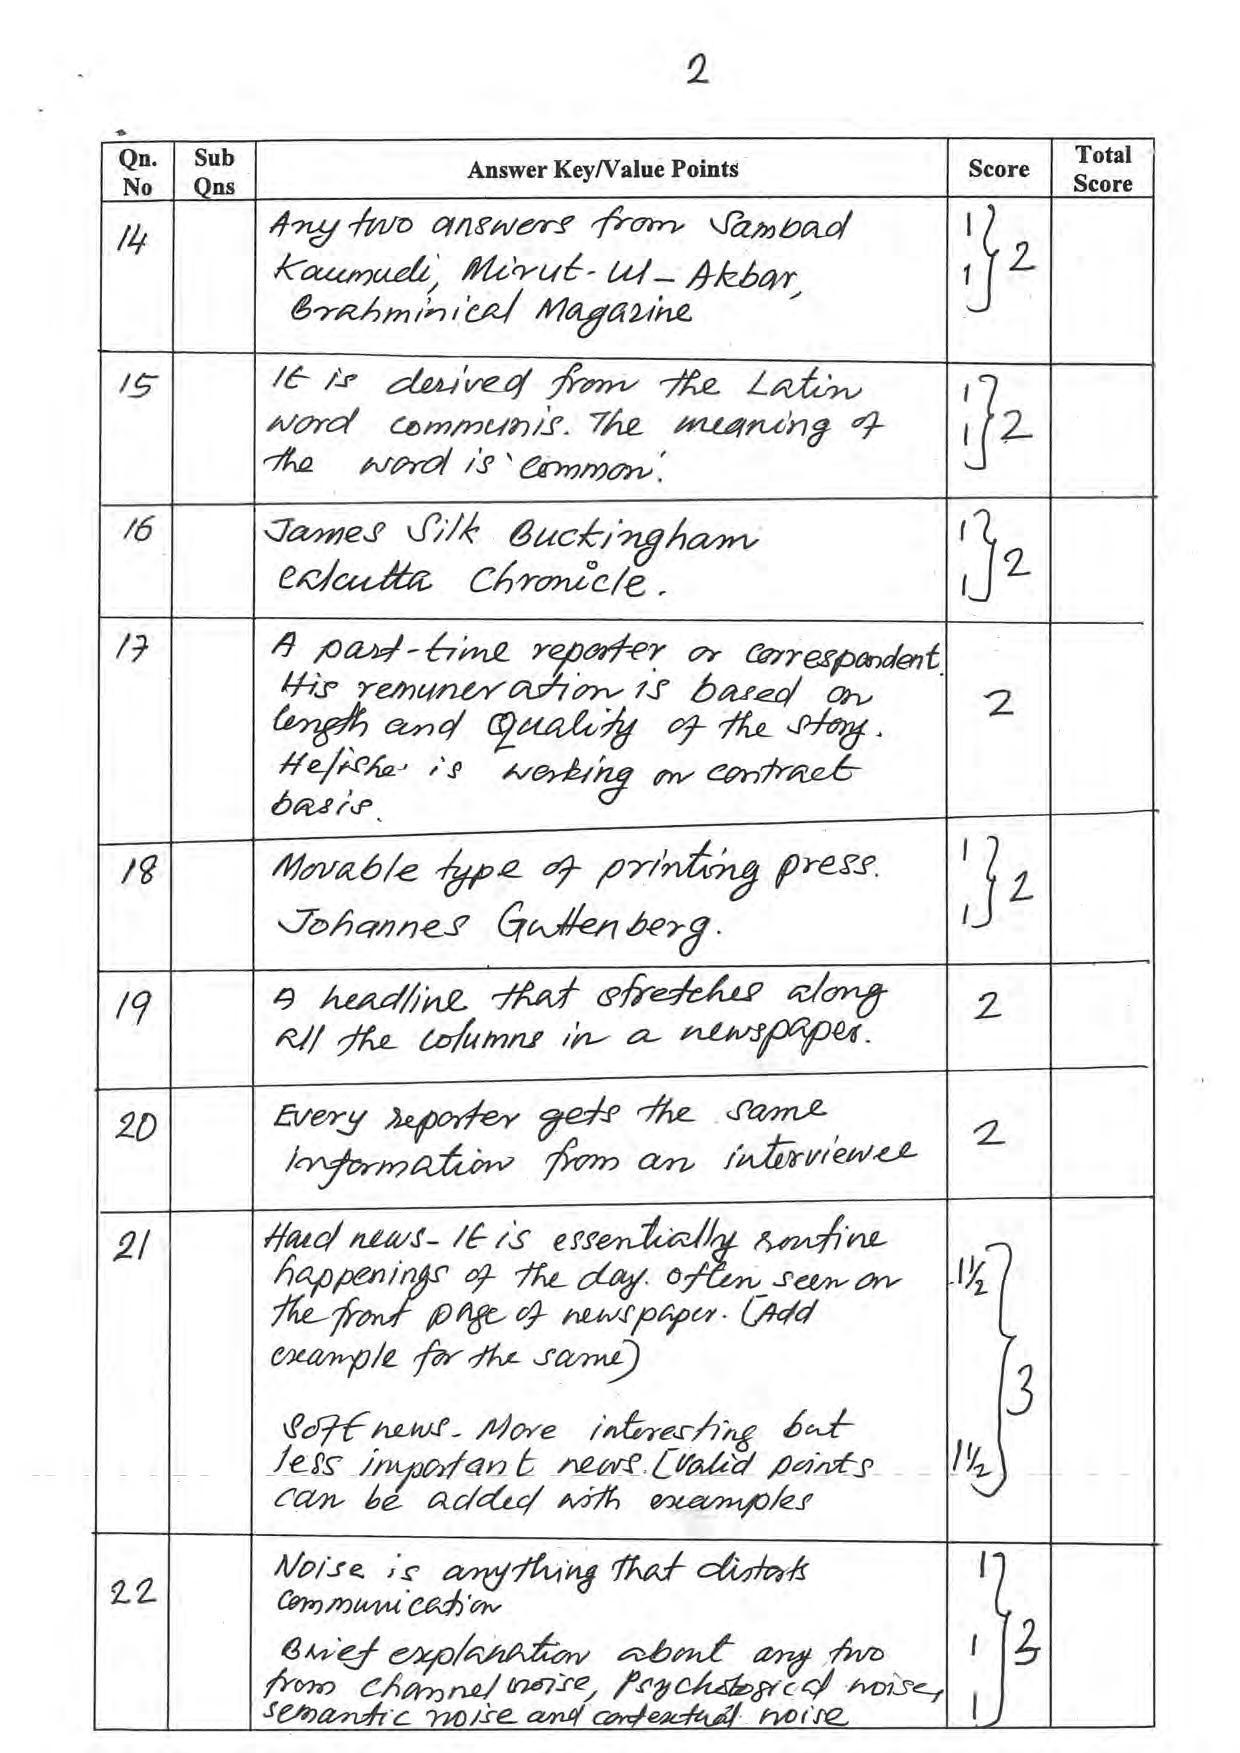 2
Qn. No Sub Qns Answer Key/Value Points Score Total Score
14 Any two answers from Sambad 1
Kaumudi, Mirut-Ul-Akbar, 1 2
Brahminical Magazine
15 It is derived from the Latin 1
word communis. The meaning of 1 2
the word is 'common'.
16 James Silk Buckingham 1
Calcutta Chronicle. 1 2
17 A part-time reporter or correspondent.
His remuneration is based on 2
length and Quality of the story.
He/she is working on contract
basis.
18 Movable type of printing press. 1
Johannes Guttenberg. 1 2
19 A headline that stretches along 2
all the columns in a newspaper.
20 Every reporter gets the same 2
information from an interviewee
21 Hard news - It is essentially routine
happenings of the day. Often seen on 1½
the front page of newspaper. (Add
example for the same) 3
Soft news - More interesting but
less important news. (Valid points 1½
can be added with examples
22 Noise is anything that distorts 1
communication
Brief explanation about any two 1 3
from channel noise, Psychological noise,
semantic noise and contextual noise 1